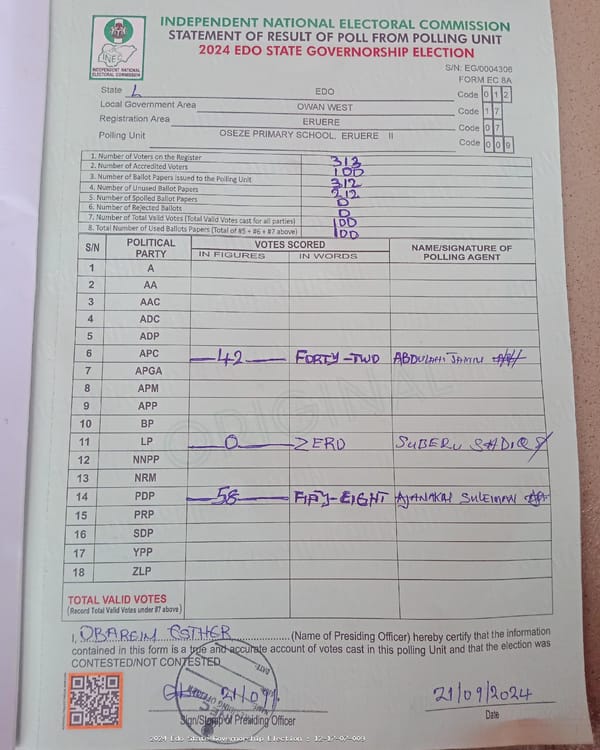 INDEPENDENT NATIONAL ELECTORAL COMMISSION
STATEMENT OF RESULT OF POLL FROM POLLING UNIT
2024 EDO STATE GOVERNORSHIP ELECTION
INEC
INDEPENDENT NATIONAL
ELECTORAL COMMISSION
S/N: EG/0004306
FORM EC 8A
State EDO Code 0 1 2
Local Government Area OWAN WEST Code 1 7
Registration Area ERUERE Code 0 7
Polling Unit OSEZE PRIMARY SCHOOL, ERUERE II Code 0 0 9
1. Number of Voters on the Register 313
2. Number of Accredited Voters 100
3. Number of Ballot Papers issued to the Polling Unit 312
4. Number of Unused Ballot Papers 212
5. Number of Spoiled Ballot Papers 0
6. Number of Rejected Ballots 0
7. Number of Total Valid Votes (Total Valid Votes cast for all parties) 100
8. Total Number of Used Ballots Papers (Total of #5 + #6 + #7 above) 100
S/N POLITICAL PARTY VOTES SCORED NAME/SIGNATURE OF POLLING AGENT
IN FIGURES IN WORDS
1 A
2 AA
3 AAC
4 ADC
5 ADP
6 APC 42 FORTY-TWO ABDULAHI JAMIU
7 APGA
8 APM
9 APP
10 BP
11 LP 0 ZERO SUBERU SADIQ
12 NNPP
13 NRM
14 PDP 58 FIFTY-EIGHT AJANAKU SULEIMAN
15 PRP
16 SDP
17 YPP
18 ZLP
ORIGINAL
TOTAL VALID VOTES
(Record Total Valid Votes under #7 above)
I, OBAREIN ESTHER (Name of Presiding Officer) hereby certify that the information
contained in this form is a true and accurate account of votes cast in this polling Unit and that the election was
CONTESTED/NOT CONTESTED
21/09 21/09/2024
Sign/Stamp of Presiding Officer Date
2024 Edo State Governorship Election : 12-17-07-009